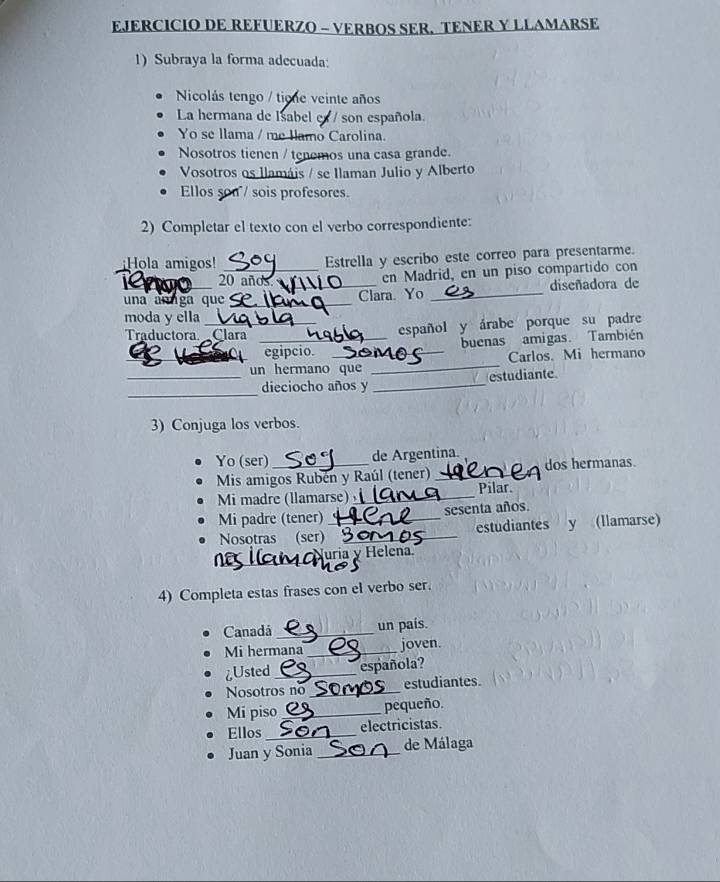 EJERCICIO DE REFUERZO – VERBOS SER, TENER Y LLAMARSE
1) Subraya la forma adecuada:
• Nicolás tengo / tiene veinte años
• La hermana de Isabel es / son española.
• Yo se llama / me llamo Carolina.
• Nosotros tienen / tenemos una casa grande.
• Vosotros os llamáis / se llaman Julio y Alberto
• Ellos son / sois profesores.
2) Completar el texto con el verbo correspondiente:
¡Hola amigos! soy Estrella y escribo este correo para presentarme.
Tengo 20 años. vivo en Madrid, en un piso compartido con
una amiga que se llama Clara. Yo es diseñadora de
moda y ella habla
Traductora Clara habla español y árabe porque su padre
es egipcio. somos buenas amigas. También
un hermano que Carlos. Mi hermano
dieciocho años y estudiante.
3) Conjuga los verbos.
• Yo (ser) soy de Argentina.
• Mis amigos Rubén y Raúl (tener) tienen dos hermanas.
• Mi madre (llamarse) llama Pilar.
• Mi padre (tener) tiene sesenta años.
• Nosotras (ser) somos estudiantes y (llamarse)
nos llamamos Nuria y Helena.
4) Completa estas frases con el verbo ser.
• Canadá es un país.
• Mi hermana es joven.
• ¿Usted es española?
• Nosotros no somos estudiantes.
• Mi piso es pequeño.
• Ellos son electricistas.
• Juan y Sonia son de Málaga